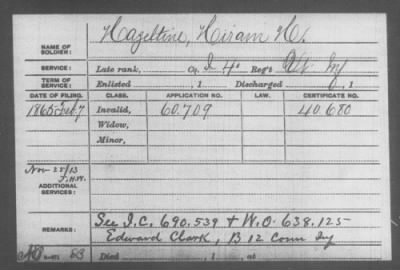 NAME OF SOLDIER: Hazeltine, Hiram H.
SERVICE: Late rank, Co. I 4" Reg't Inf
TERM OF SERVICE: Enlisted , 1 Discharged , 1
DATE OF FILING. CLASS. APPLICATION NO. LAW. CERTIFICATE NO.
1865 Feb 7 Invalid, 60.709 40.680
Widow,
Minor,
Nov 25/13
ADDITIONAL SERVICES:
See I.C. 690.539 + W.O. 638.125
Edward Clark, B 12 Conn Inf
Died , 1 , at